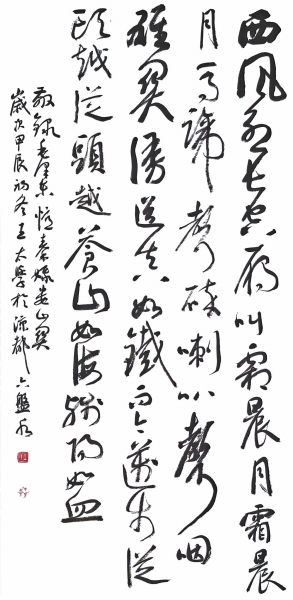 西風烈長空雁叫霜晨月霜晨
月馬蹄聲碎喇叭聲咽
雄関漫道真如鐵而今邁步從
頭越從頭越蒼山如海殘陽如血
敬録毛澤東憶秦娥婁山関
歲次甲辰初冬王太學於涼都六盤水